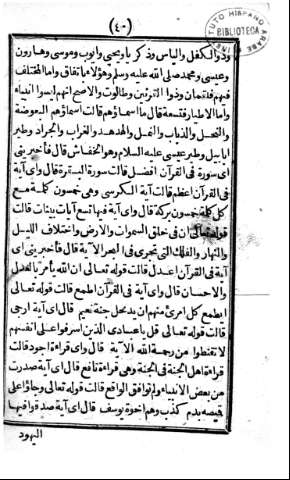 (٤٠)
INSTITUTO HISPANO ARABE
BIBLIOTECA
وذوالكفل والياس وذكر ياويحيى وايوب وموسى وهارون
وعيسى ومحمد صلى الله عليه وسلم وهؤلاء باتفاق واما المختلف
فيهم فلقمان وذوا القرنين وطالوت والاصح انهم ليسوا انبياء
واما الاطيار فتسعة قال ما اسماؤهم قالت اسماؤهم البعوضة
والنحل والذباب والنمل والهدهد والغراب والجراد وطير
ابابيل وطير عيسى عليه السلام وهو الخفاش قال فأخبريني
اى سورة فى القرآن افضل قالت سورة البقرة قال واى آية
فى القرآن اعظم قالت آية الكرسى وهى خمسون كلمة مع
كل كلمة خمسون بركة قال واى آية فيها تسع آيات بينات قالت
قوله تعالى ان فى خلق السموات والارض واختلاف الليل
والنهار والفلك التى تجرى فى البحر الآية قال فأخبرينى اى
آية فى القرآن اعدل قالت قوله تعالى ان الله يأمر بالعدل
والاحسان قال واى آية فى القرآن اطمع قالت قوله تعالى
ايطمع كل امرئ منهم ان يدخل جنة نعيم قال اى آية ارجى
قالت قوله تعالى قل ياعبادى الذين اسرفوا على انفسهم
لا تقنطوا من رحمة الله الآية قال واى قراءة اجود قالت
قراءة اهل الجنة فى الجنة وهى قراءة نافع قال اى آية صدرت
من بعض الانبياء ولم توافق الواقع قالت قوله تعالى وجاؤا على
قميصه بدم كذب وهم اخوة يوسف قال اى آية صدقوا فيها
اليهود